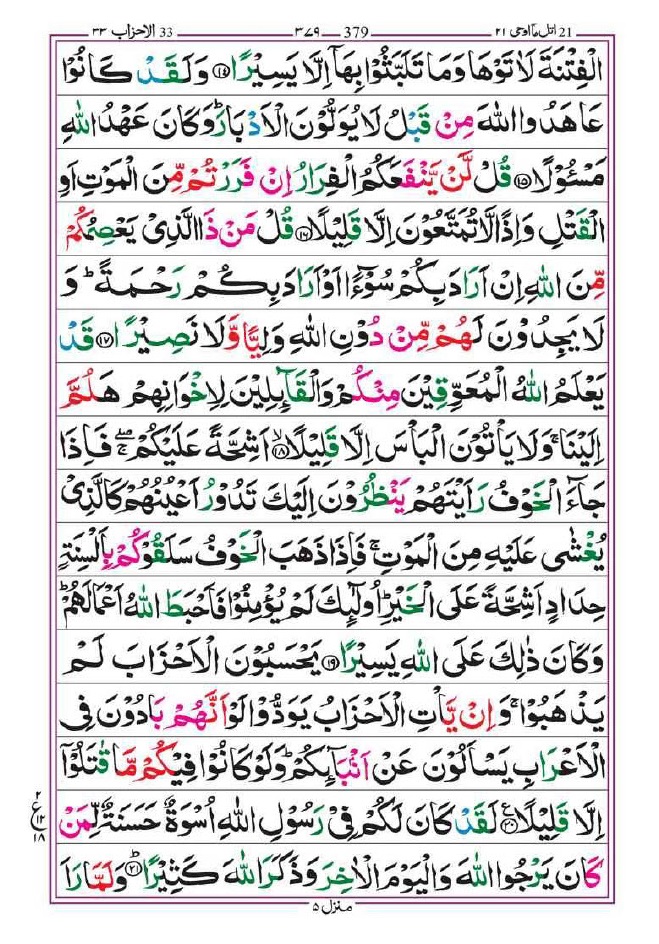 21 اتل مآ اوحی ۲۱
379 ۳۷۹
33 الاحزاب ۳۳
الْفِتْنَةَ لَاٰتَوْهَا وَمَا تَلَبَّثُوْا بِهَاۤ اِلَّا يَسِيْرًا ⑭ وَلَقَدْ كَانُوْا
عَاهَدُوا اللّٰهَ مِنْ قَبْلُ لَا يُوَلُّوْنَ الْاَدْبَارَؕ وَكَانَ عَهْدُ اللّٰهِ
مَسْـُٔوْلًا ⑮ قُلْ لَّنْ يَّنْفَعَكُمُ الْفِرَارُ اِنْ فَرَرْتُمْ مِّنَ الْمَوْتِ اَوِ
الْقَتْلِ وَاِذًا لَّا تُمَتَّعُوْنَ اِلَّا قَلِيْلًا ⑯ قُلْ مَنْ ذَا الَّذِيْ يَعْصِمُكُمْ
مِّنَ اللّٰهِ اِنْ اَرَادَ بِكُمْ سُوْٓءًا اَوْ اَرَادَ بِكُمْ رَحْمَةًؕ وَ
لَا يَجِدُوْنَ لَهُمْ مِّنْ دُوْنِ اللّٰهِ وَلِيًّا وَّلَا نَصِيْرًا ⑰ قَدْ
يَعْلَمُ اللّٰهُ الْمُعَوِّقِيْنَ مِنْكُمْ وَالْقَآئِلِيْنَ لِاِخْوَانِهِمْ هَلُمَّ
اِلَيْنَاۚ وَلَا يَاْتُوْنَ الْبَاْسَ اِلَّا قَلِيْلًا ⑱ۙ اَشِحَّةً عَلَيْكُمْۖۚ فَاِذَا
جَآءَ الْخَوْفُ رَاَيْتَهُمْ يَنْظُرُوْنَ اِلَيْكَ تَدُوْرُ اَعْيُنُهُمْ كَالَّذِيْ
يُغْشٰى عَلَيْهِ مِنَ الْمَوْتِۚ فَاِذَا ذَهَبَ الْخَوْفُ سَلَقُوْكُمْ بِاَلْسِنَةٍ
حِدَادٍ اَشِحَّةً عَلَى الْخَيْرِؕ اُولٰٓئِكَ لَمْ يُؤْمِنُوْا فَاَحْبَطَ اللّٰهُ اَعْمَالَهُمْؕ
وَكَانَ ذٰلِكَ عَلَى اللّٰهِ يَسِيْرًا ⑲ يَحْسَبُوْنَ الْاَحْزَابَ لَمْ
يَذْهَبُوْاۚ وَاِنْ يَّاْتِ الْاَحْزَابُ يَوَدُّوْا لَوْ اَنَّهُمْ بَادُوْنَ فِى
الْاَعْرَابِ يَسْاَلُوْنَ عَنْ اَنْۢبَآئِكُمْؕ وَلَوْ كَانُوْا فِيْكُمْ مَّا قٰتَلُوْۤا
اِلَّا قَلِيْلًا ⑳ۧ لَقَدْ كَانَ لَكُمْ فِيْ رَسُوْلِ اللّٰهِ اُسْوَةٌ حَسَنَةٌ لِّمَنْ
كَانَ يَرْجُوا اللّٰهَ وَالْيَوْمَ الْاٰخِرَ وَذَكَرَ اللّٰهَ كَثِيْرًاؕ ㉑ وَلَمَّا رَاَ
۲
ع
۱۲
۱۸
منزل ۵